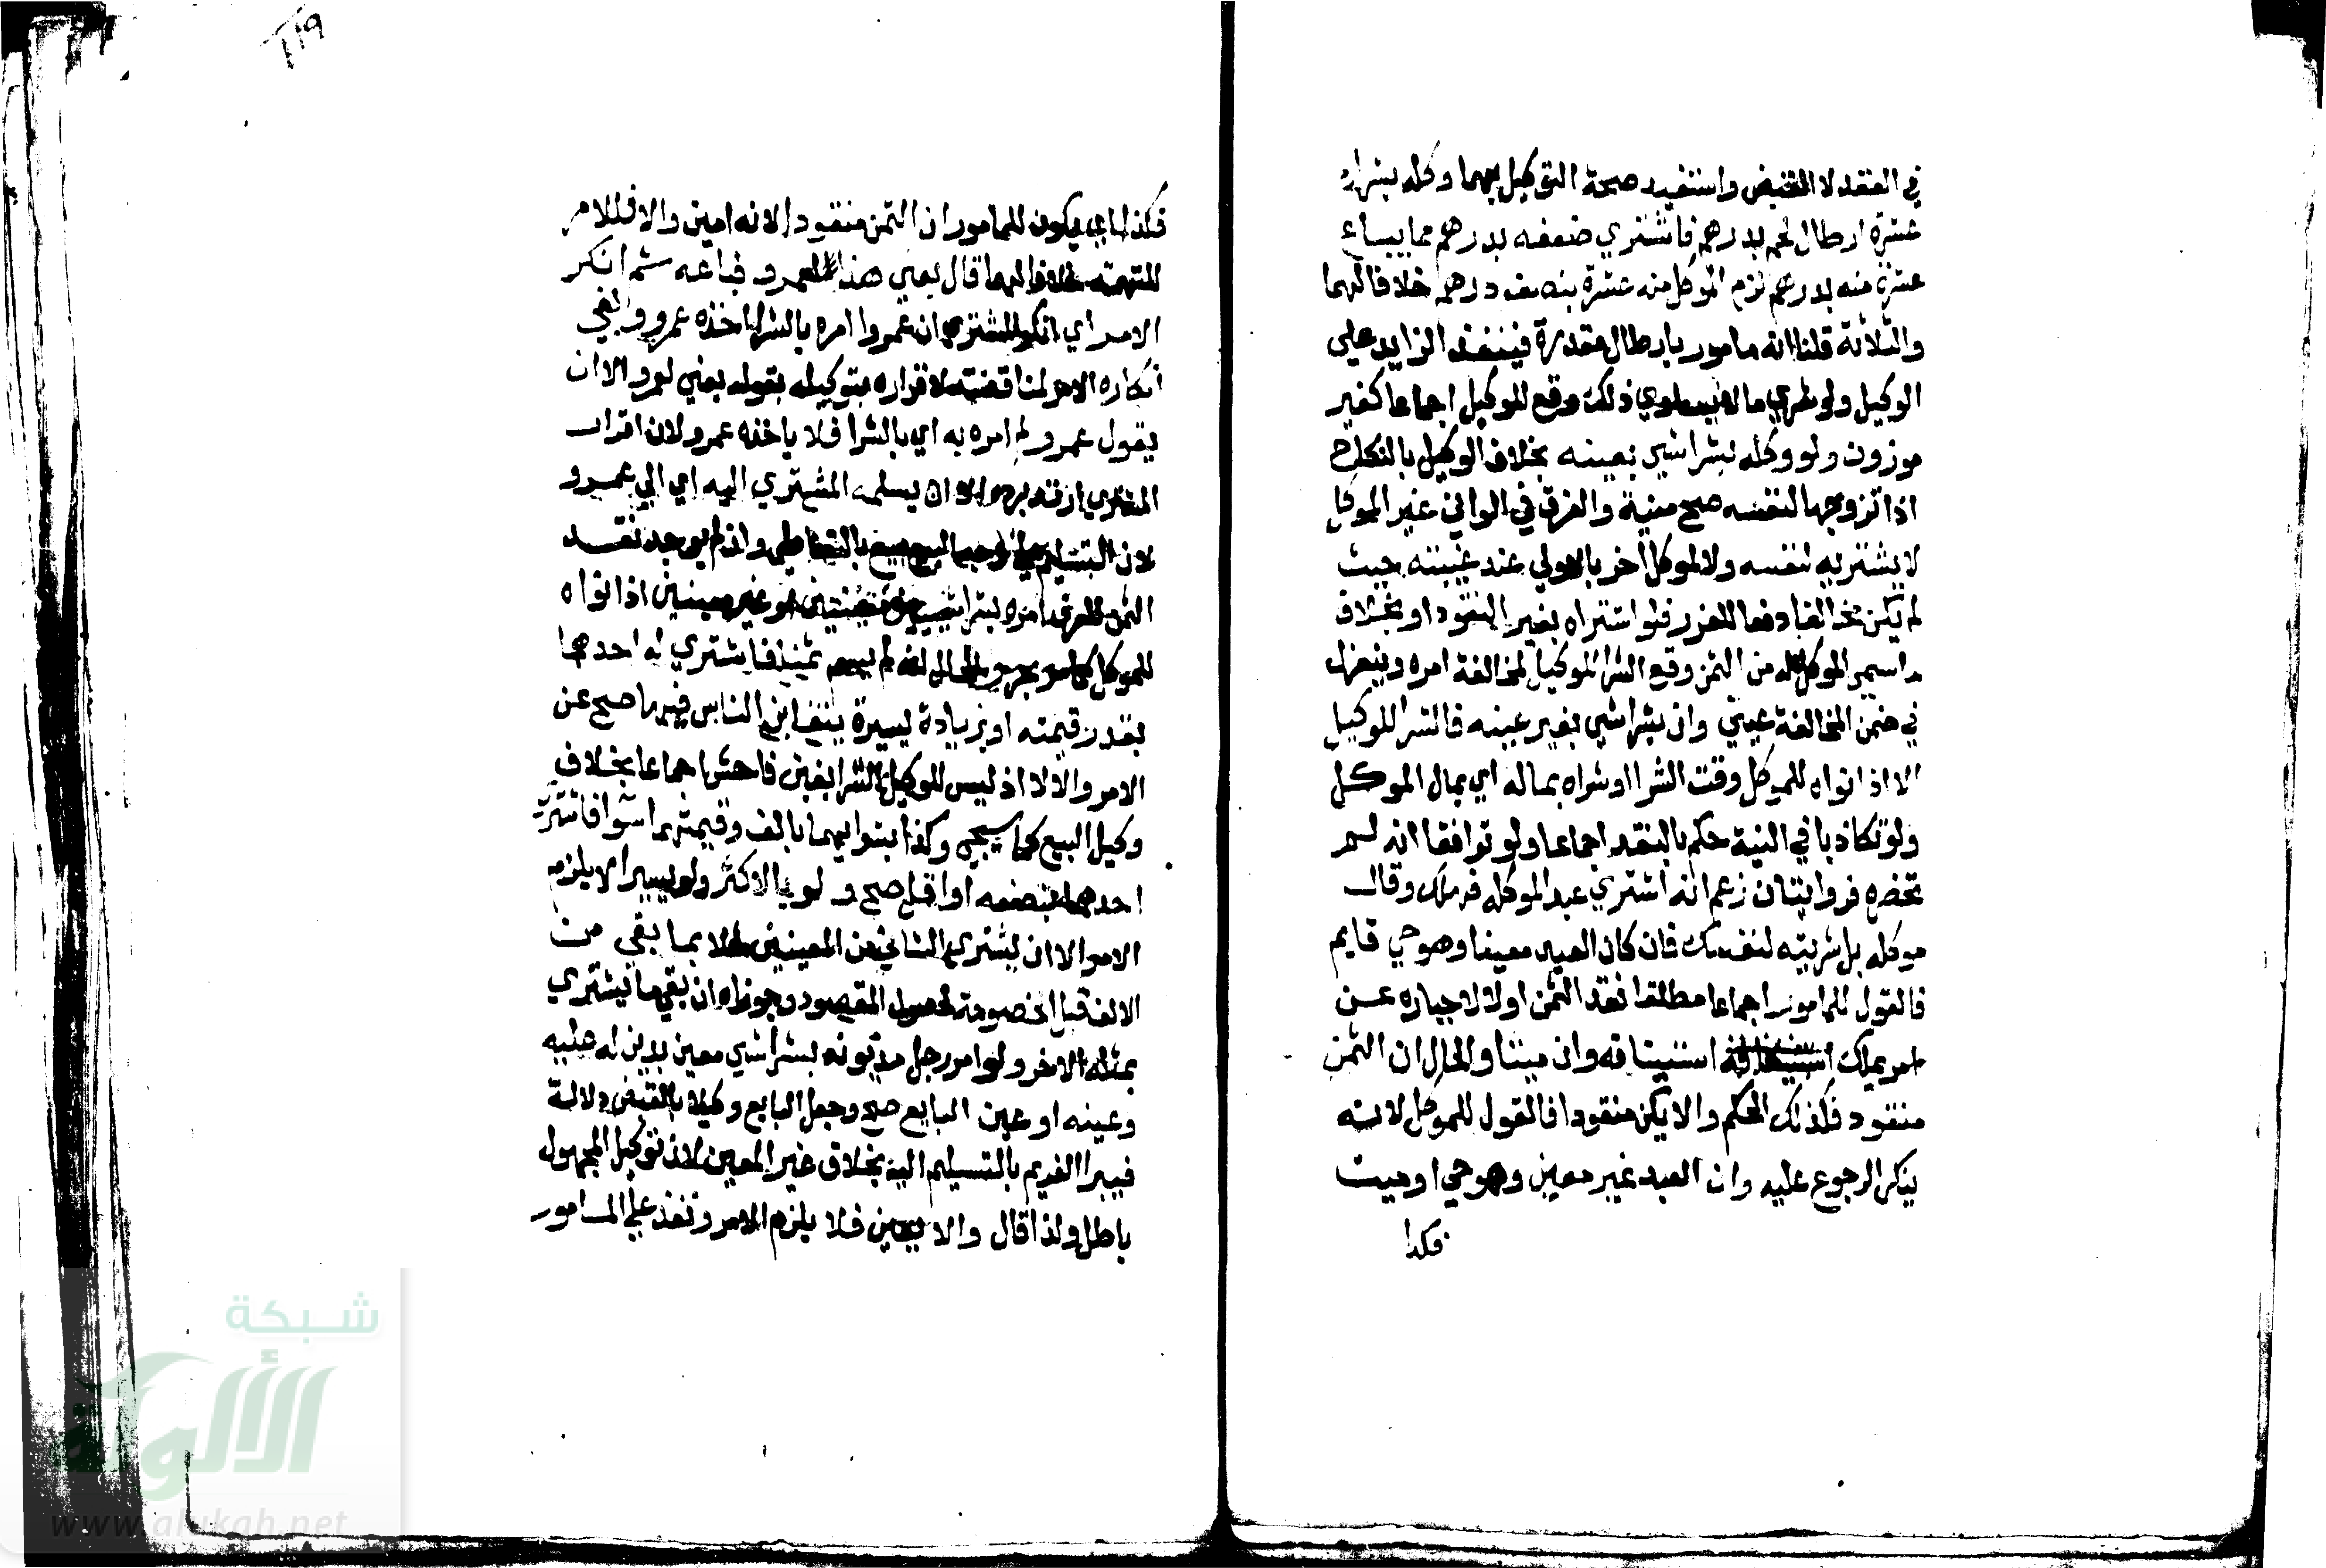 في العقد لا القبض واستفيد صحة التوكيل بهما وكله بشراء
عشرة ارطال لحم بدرهم فاشتري ضعفه بدرهم مما يباع
عشرة منه بدرهم لزم الموكل منه عشرة بنصف درهم خلافا لهما
والثلاثة قلنا انه مامور بارطال مقدرة فينفذ الزايد علي
الوكيل ولو شري ما لا يساوي ذلك وقع للوكيل اجماعا كغير
موزون ولو وكله بشرا شي بعينه بخلاف الوكيل بالنكاح
اذا تزوجها لنفسه صح منية والفرق في الواني غير الموكل
لا يشتريه لنفسه ولا لموكل اخر بالاولي عند غيبته حيث
لم يكن مخالفا دفعا للغرر فلو اشتراه بغير النقود او بخلاف
ما سمي الموكل له من الثمن وقع الشرا للوكيل لمخالفة امره وينعزل
في ضمن المخالفة عيني وان بشرا شي بغير عينه فالشرا للوكيل
الا اذا نواه للموكل وقت الشرا او شراه بماله اي بمال الموكل
ولو تكاذبا في النية حكم بالنقد اجماعا ولو توافقا انه لم
تحضره فروايتان زعم انه اشتري عبدا لموكله فهلك وقال
موكله بل شريته لنفسك فان كان العبد معينا وهو حي قايم
فالقول للمامور اجماعا مطلقا نقد الثمن اولا لاخباره عن
امر يملك استينافه وان ميتا والحال ان الثمن
منقود فكذلك الحكم والا يكن منقودا فالقول للموكل لانه
ينكر الرجوع عليه وان العبد غير معين وهو حي او ميت
فكذا
٢١٩
فكذا اي يكون للمامور ان الثمن منقودا لانه امين والا فللامر
للتهمة خلافا لهما قال بعني هذا لعمرو فباعه ثم انكر
الامر اي انكر المشتري ان عمروا امره بالشرا اخذه عمرو ولغي
انكاره الامر لمناقضته لاقراره بتوكيله بقوله بعني لعمرو الا ان
يقول عمرو لم امره به اي بالشرا فلا ياخذه عمرو لان اقرار
المشتري ارتد برده الا ان يسلمه المشتري اليه اي الي عمرو
لان التسليم بيع بالتعاطي وان لم يوجد نقد
الثمن للعرف امره بشرا شيين معينين او غير معينين اذا نواه
للموكل كما مر بحر والحال انه لم يسم ثمنا فاشتري له احدهما
بقدر قيمته او بزيادة يسيرة يتغابن الناس فيها صح عن
الامر والا لا اذ ليس للوكيل الشرا بغبن فاحش اجماعا بخلاف
وكيل البيع كما سيجي وكذا بشرايهما بالف وقيمتهما سوا فاشتري
احدهما بنصفه او اقل صح ولو بالاكثر ولو يسيرا لا يلزم
الامر الا ان يشتري الثاني من المعينين مثلا بما بقي من
الالف قبل الخصومة لحصول المقصود وجوزاه ان بقي ما يشتري
بمثله الاخر ولو امر رجل مديونه بشرا شي معين بدين له عليه
وعينه او عين البايع صح وجعل البايع وكيلا بالقبض دلالة
فيبرا الغريم بالتسليم اليه بخلاف غير المعين لان توكيل المجهول
باطل ولذا قال والا يعين فلا يلزم الامر ونفذ علي المامور
شبكة
الألوكة
www.alukah.net